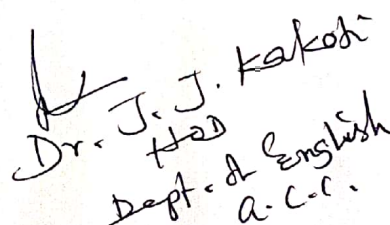 Dr. J. J. Kakoti
HOD
Dept. of English
A.C.C.